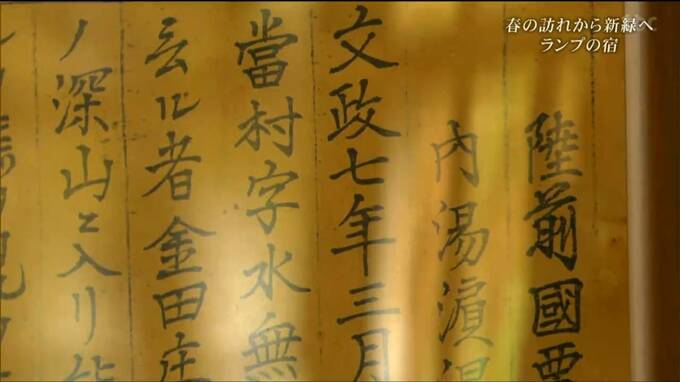 春の訪れから新緑へ
ランプの宿
陸前國栗
内湯濵温
文政七年三月
當村字水無
云ル者金田庄
ノ深山ニ入リ